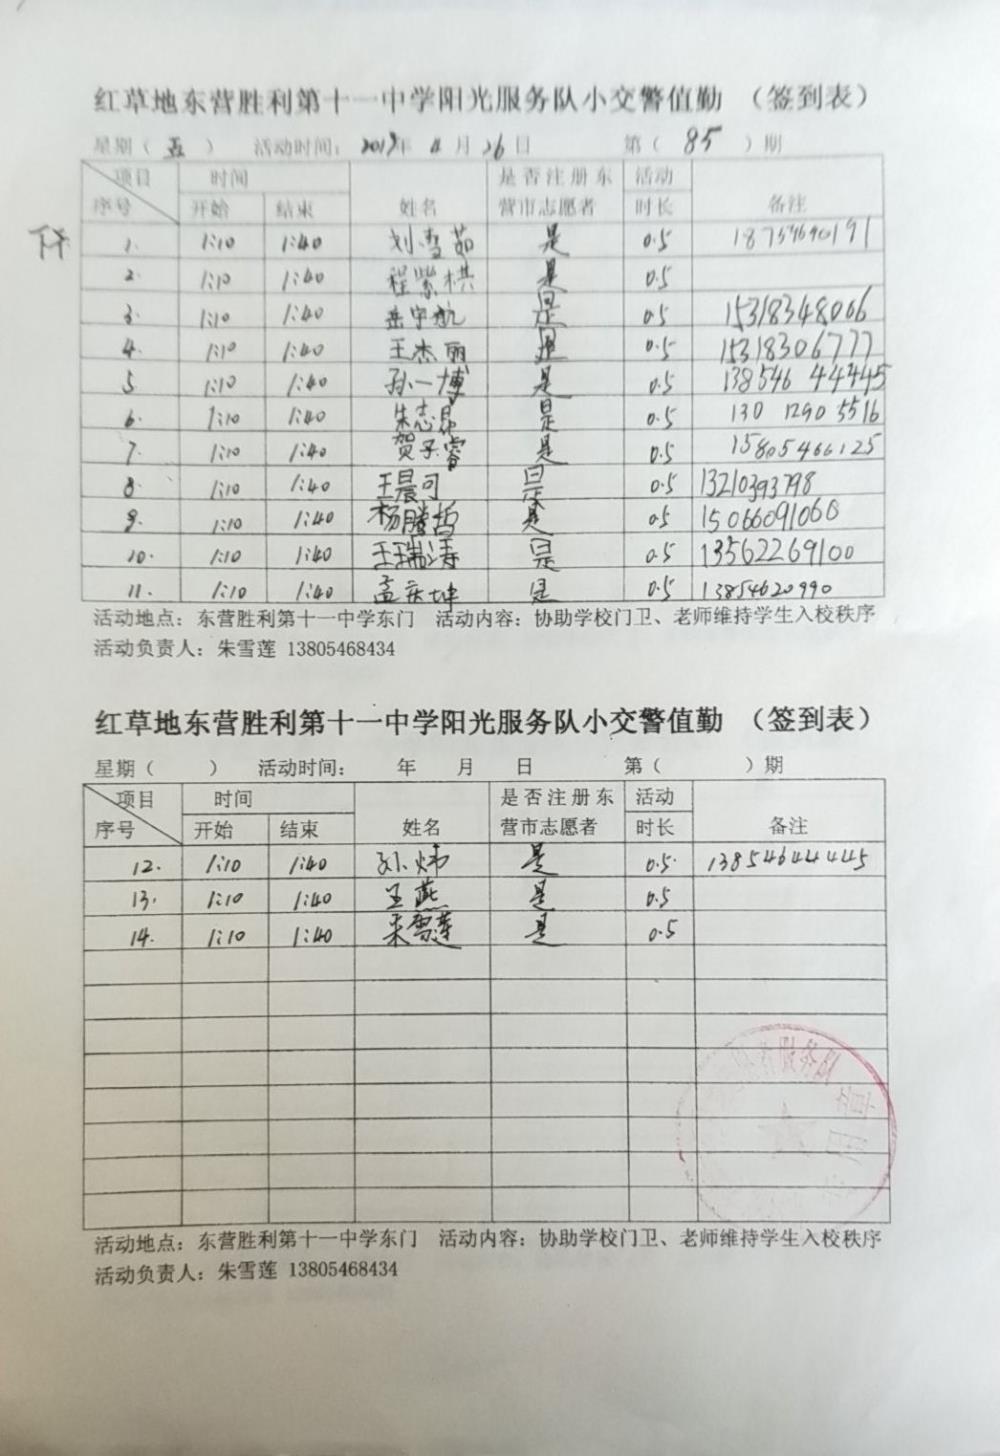 红草地东营胜利第十一中学阳光服务队小交警值勤 （签到表）
星期（ 五 ） 活动时间： 2019年 4 月 26 日 第（ 85 ）期
项目 时间 是否注册东 活动
序号 开始 结束 姓名 营市志愿者 时长 备注
下午
1. 1:10 1:40 刘雪茹 是 0.5 18754690191
2. 1:10 1:40 程紫棋 是 0.5
3. 1:10 1:40 岳宇航 是 0.5 15318348006
4. 1:10 1:40 王杰丽 是 0.5 15318306777
5 1:10 1:40 孙一博 是 0.5 138546 44445
6. 1:10 1:40 朱志昂 是 0.5 130 1290 5516
7. 1:10 1:40 贺子睿 是 0.5 15805466125
8. 1:10 1:40 王晨可 是 0.5 13210393798
9. 1:10 1:40 杨腾哲 是 0.5 15066091060
10. 1:10 1:40 王瑞涛 是 0.5 13562269100
11. 1:10 1:40 孟庆坤 是 0.5 13854620990
活动地点：东营胜利第十一中学东门 活动内容：协助学校门卫、老师维持学生入校秩序
活动负责人：朱雪莲 13805468434
红草地东营胜利第十一中学阳光服务队小交警值勤 （签到表）
星期（ ） 活动时间： 年 月 日 第（ ）期
项目 时间 是否注册东 活动
序号 开始 结束 姓名 营市志愿者 时长 备注
12. 1:10 1:40 孙炜 是 0.5. 13854644445
13. 1:10 1:40 王燕 是 0.5
14. 1:10 1:40 朱雪莲 是 0.5
服务队
活动地点：东营胜利第十一中学东门 活动内容：协助学校门卫、老师维持学生入校秩序
活动负责人：朱雪莲 13805468434